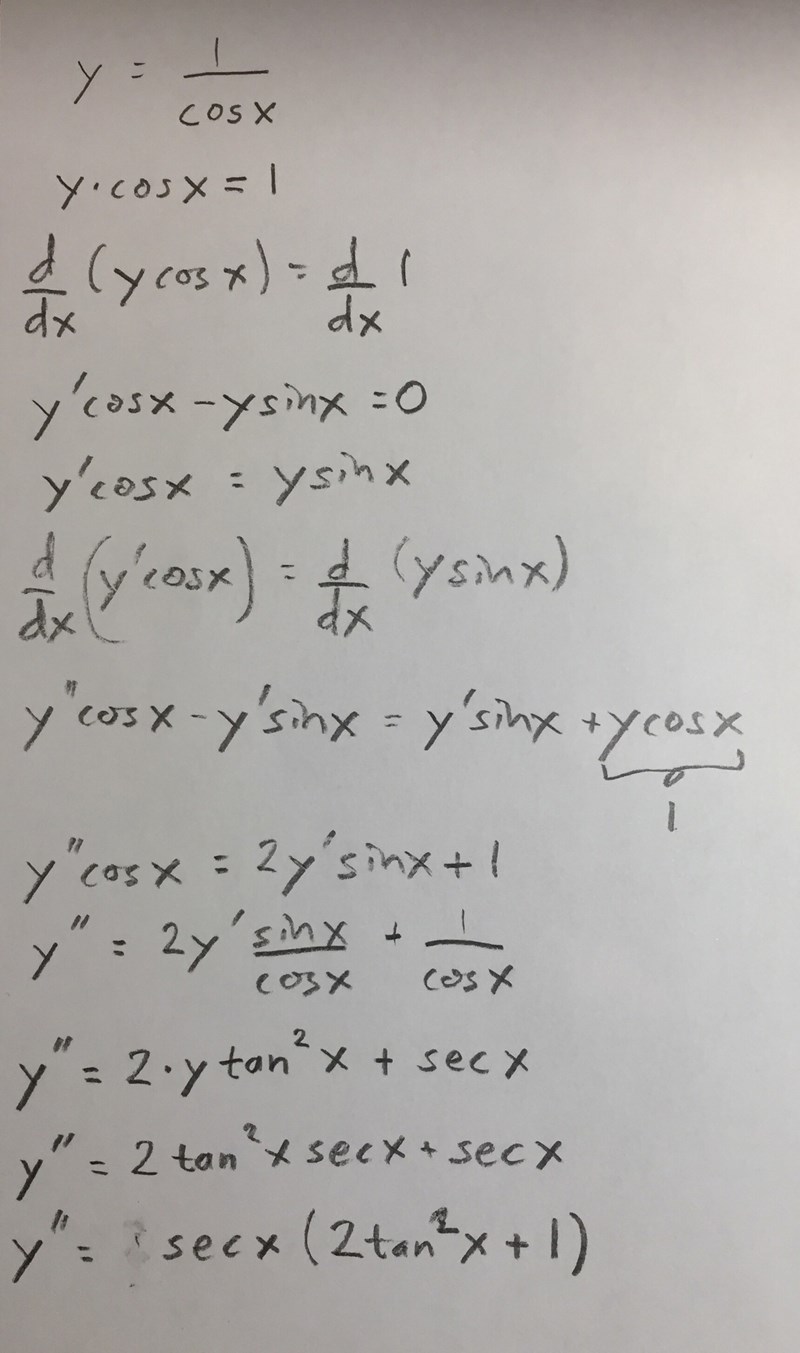 y = 1/cosx
y·cosx = 1
d/dx (y cosx) = d/dx 1
y'cosx - ysinx = 0
y'cosx = ysinx
d/dx (y'cosx) = d/dx (ysinx)
y''cosx - y'sinx = y'sinx + ycosx
1
y''cosx = 2y'sinx + 1
y'' = 2y' sinx/cosx + 1/cosx
y'' = 2·y tan²x + secx
y'' = 2 tan²x secx + secx
y'' = secx (2tan²x + 1)